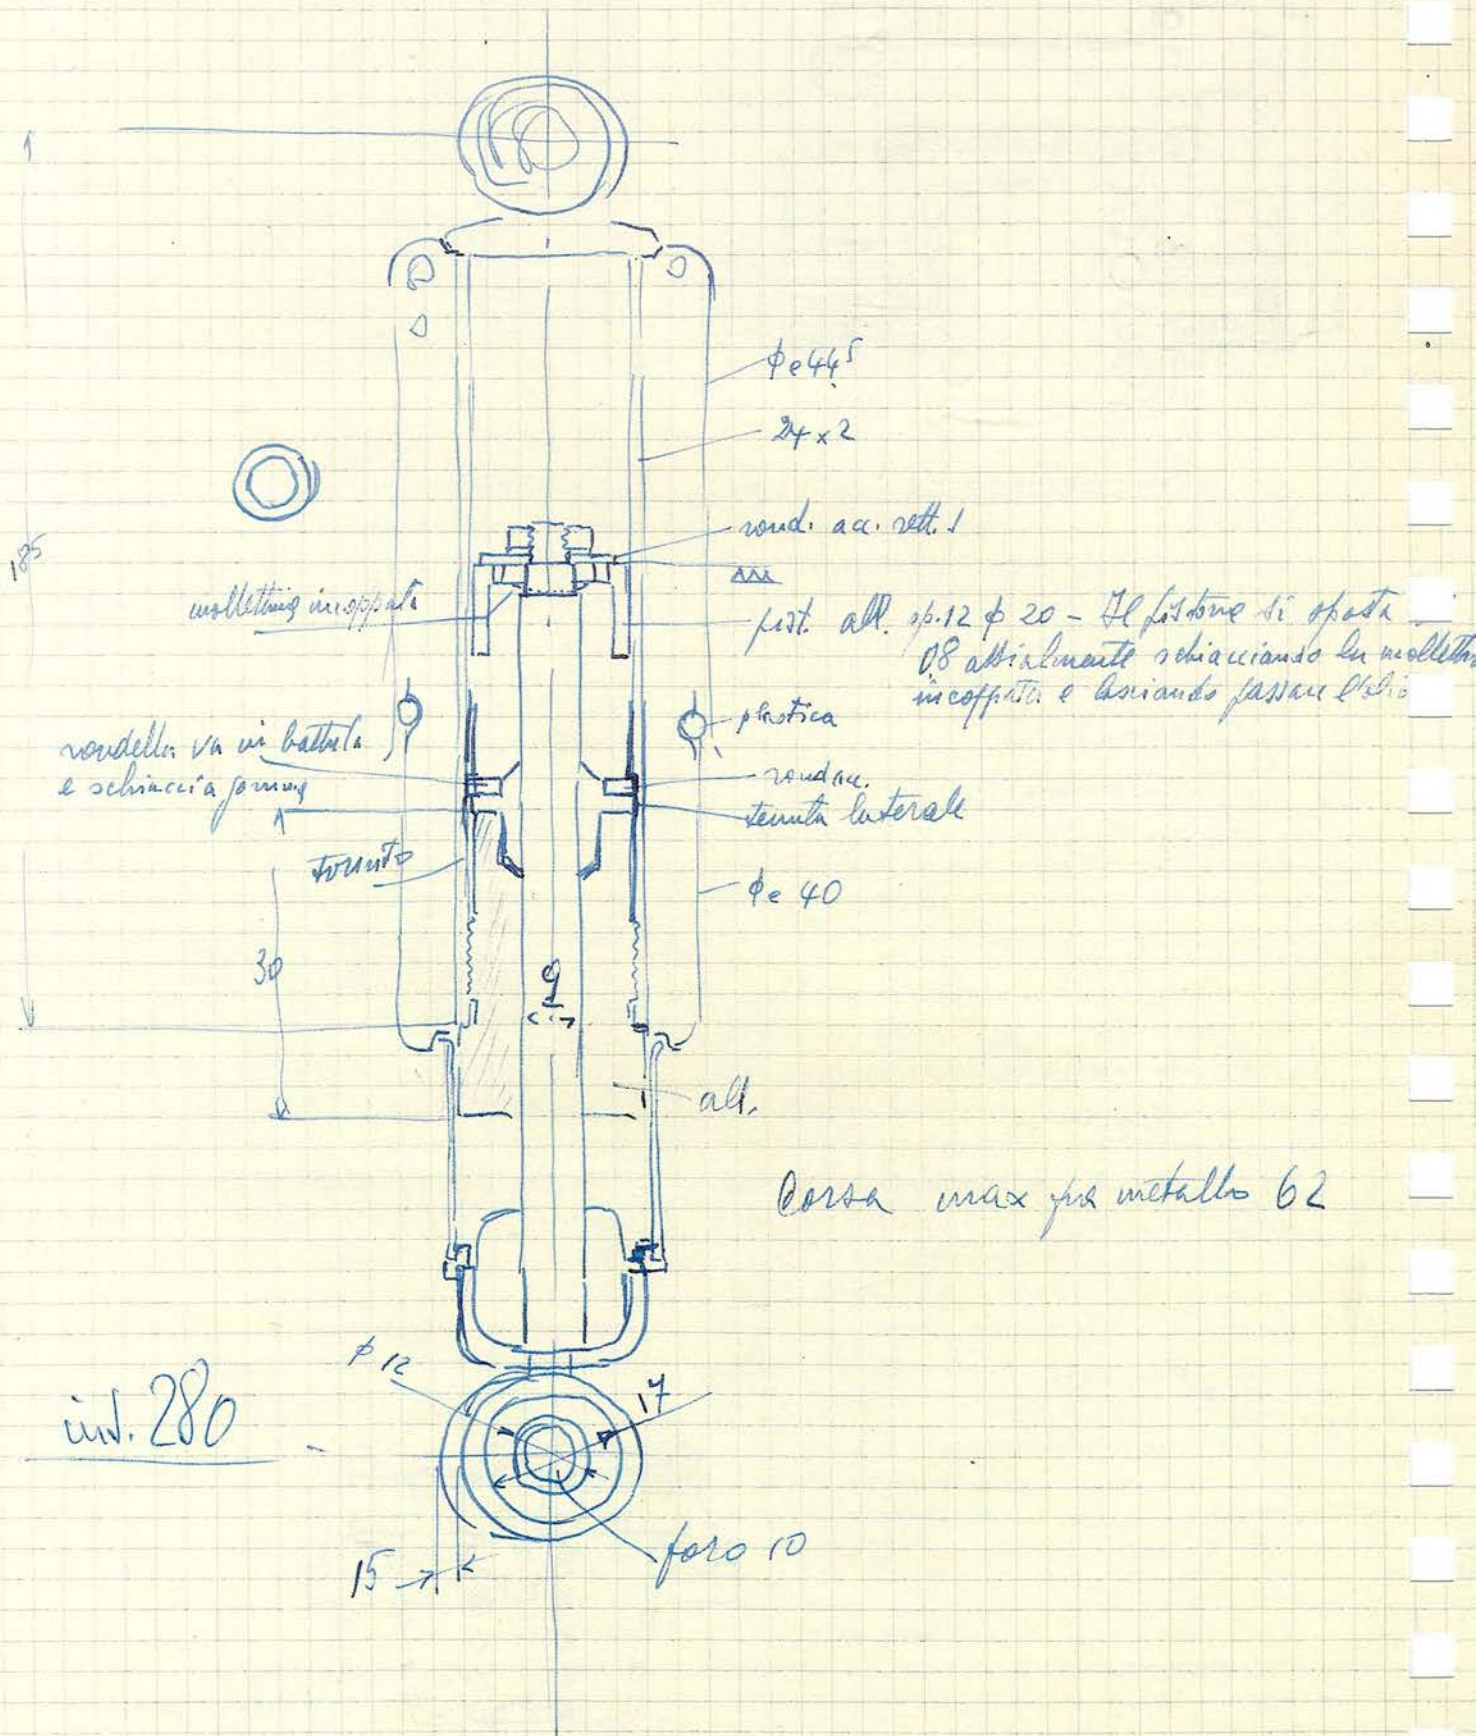 φe 44⁵
24x2
rond. acc. rett. 1
185
mollettina incoppata
pist. all. sp.12 φ 20 - Il pistone si sposta
08 assialmente schiacciando la mollettina
incoppata e lasciando passare l'olio
plastica
rondella va in battuta
e schiaccia gomma
rond acc.
tenuta laterale
tornito
φe 40
30
9
all.
Corsa max fra metallo 62
φ 12
17
int. 280
15
foro 10